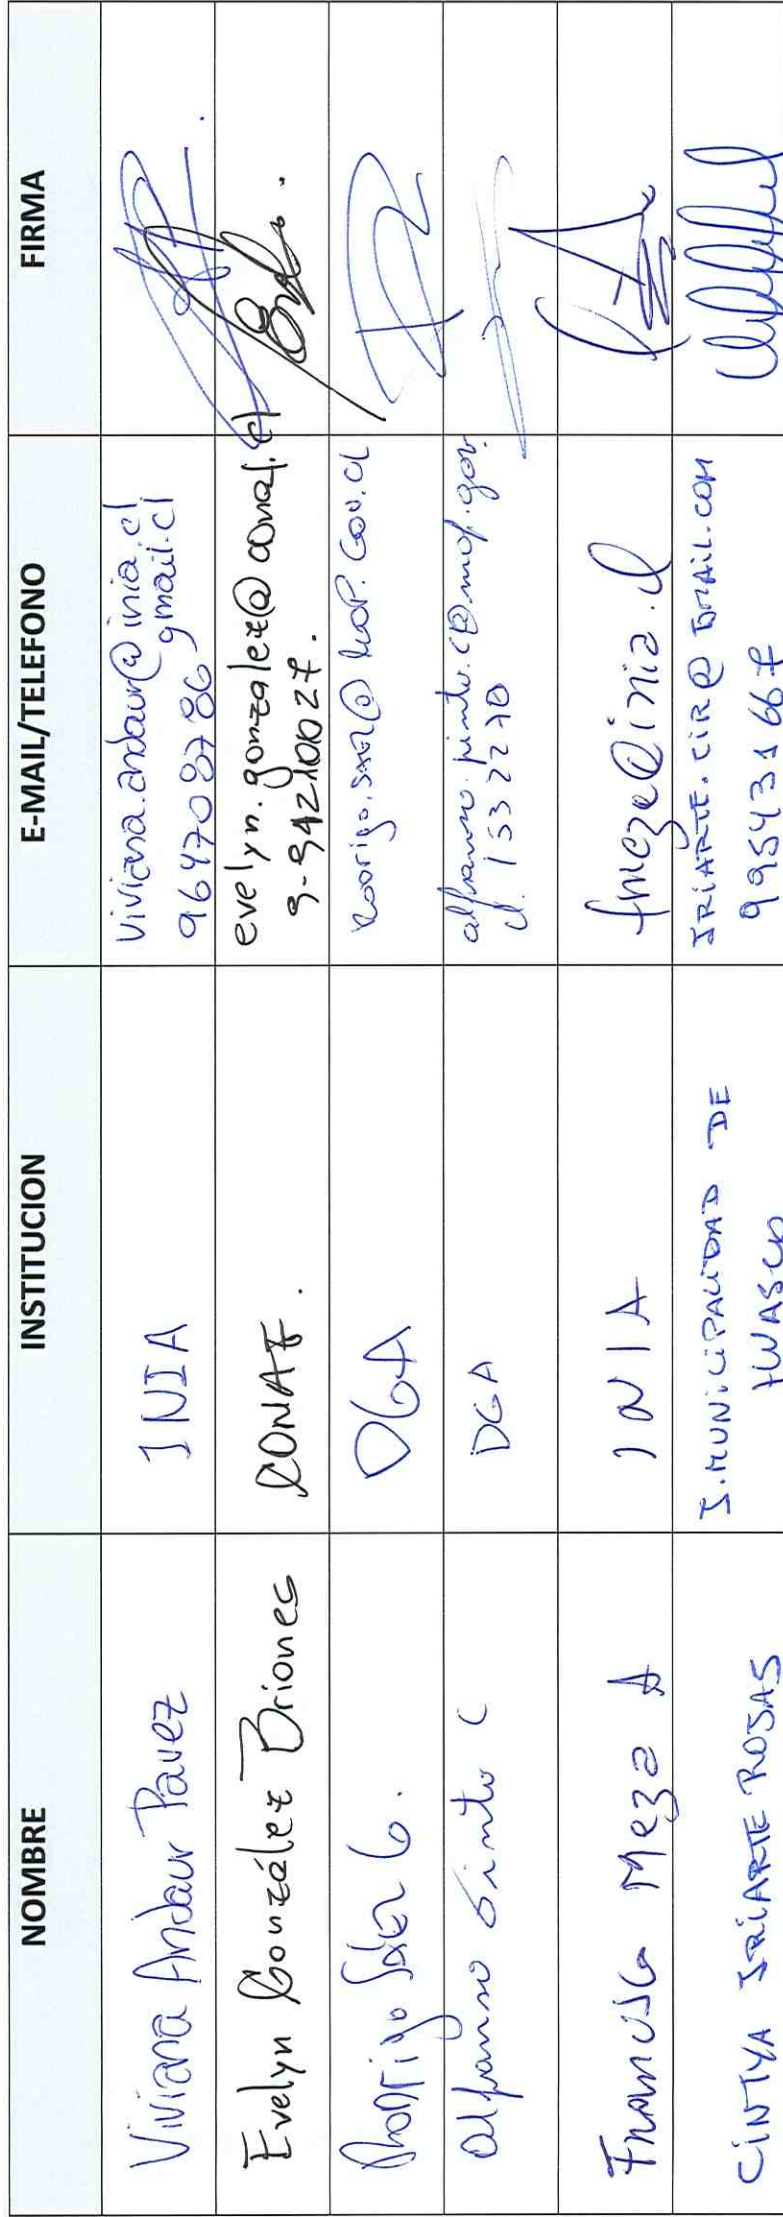 NOMBRE INSTITUCION E-MAIL/TELEFONO FIRMA
Viviana Andaur Pavez INIA viviana.andaur@inia.cl
gmail.cl
964708786
Evelyn González Briones CONAF. evelyn.gonzalez@conaf.cl
9-94210027.
Rodrigo Sáez G. DGA Rodrigo.saez@mop.gov.cl
Alfonso Pinto C DGA alfonso.pinto.c@mop.gov.
cl. 1532270
Francisco Meza A INIA fmeza@inia.cl
CINTYA IRIARTE ROJAS I. MUNICIPALIDAD DE
HUASCO
IRIARTE.CIR@GMAIL.COM
995431667